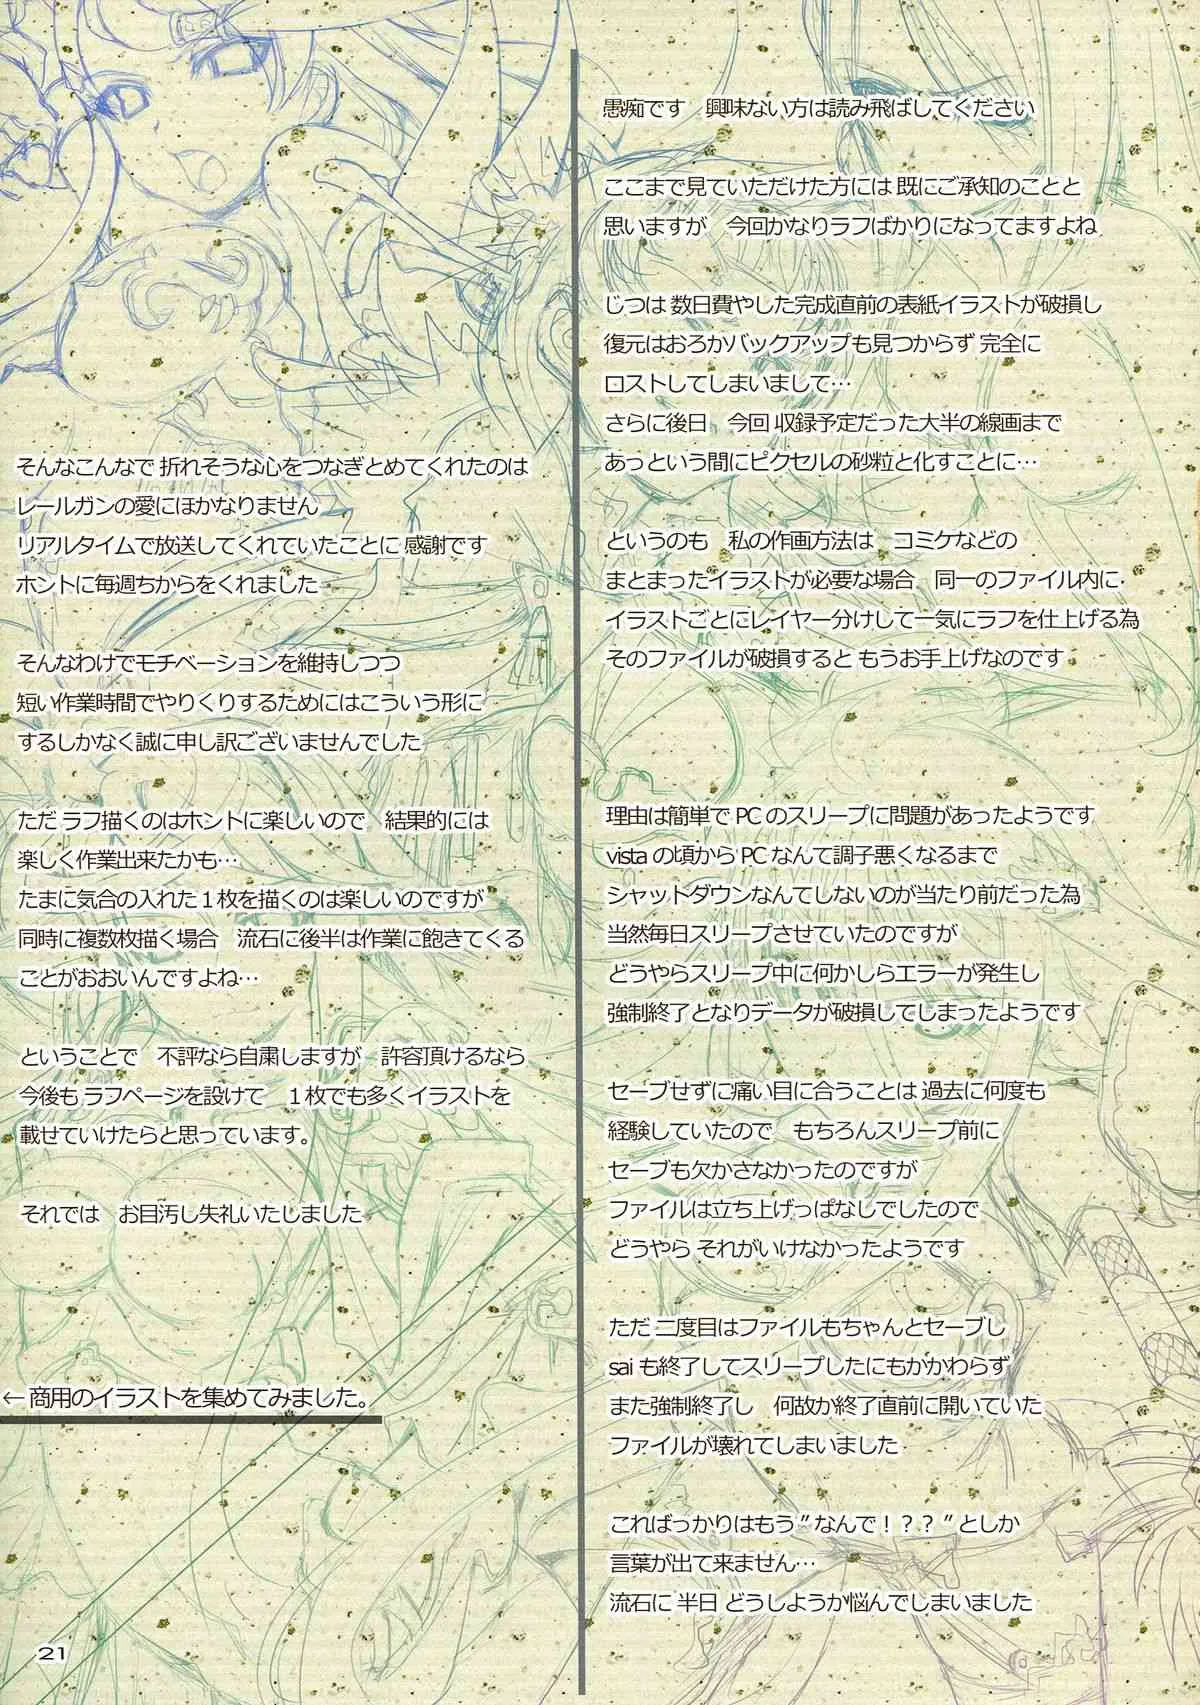 愚痴です　興味ない方は読み飛ばしてください
ここまで見ていただけた方には 既にご承知のことと
思いますが　今回かなりラフばかりになってますよね
じつは 数日費やした完成直前の表紙イラストが破損し
復元はおろかバックアップも見つからず 完全に
ロストしてしまいまして…
さらに後日　今回 収録予定だった大半の線画まで
あっという間にピクセルの砂粒と化すことに…
というのも　私の作画方法は　コミケなどの
まとまったイラストが必要な場合　同一のファイル内に
イラストごとにレイヤー分けして一気にラフを仕上げる為
そのファイルが破損すると もうお手上げなのです
理由は簡単で PC のスリープに問題があったようです
vista の頃から PC なんて調子悪くなるまで
シャットダウンなんてしないのが当たり前だった為
当然毎日スリープさせていたのですが
どうやらスリープ中に何かしらエラーが発生し
強制終了となりデータが破損してしまったようです
セーブせずに痛い目に合うことは 過去に何度も
経験していたので　もちろんスリープ前に
セーブも欠かさなかったのですが
ファイルは立ち上げっぱなしでしたので
どうやら それがいけなかったようです
ただ 二度目はファイルもちゃんとセーブし
sai も終了してスリープしたにもかかわらず
また強制終了し　何故か終了直前に開いていた
ファイルが壊れてしまいました
こればっかりはもう〃なんで！？？〃としか
言葉が出て来ません…
流石に 半日 どうしようか悩んでしまいました
そんなこんなで 折れそうな心をつなぎとめてくれたのは
レールガンの愛にほかなりません
リアルタイムで放送してくれていたことに 感謝です
ホントに毎週ちからをくれました
そんなわけでモチベーションを維持しつつ
短い作業時間でやりくりするためにはこういう形に
するしかなく誠に申し訳ございませんでした
ただ ラフ描くのはホントに楽しいので　結果的には
楽しく作業出来たかも…
たまに気合の入れた１枚を描くのは楽しいのですが
同時に複数枚描く場合　流石に後半は作業に飽きてくる
ことがおおいんですよね…
ということで　不評なら自粛しますが　許容頂けるなら
今後も ラフページを設けて　１枚でも多くイラストを
載せていけたらと思っています。
それでは　お目汚し失礼いたしました
←商用のイラストを集めてみました。
21